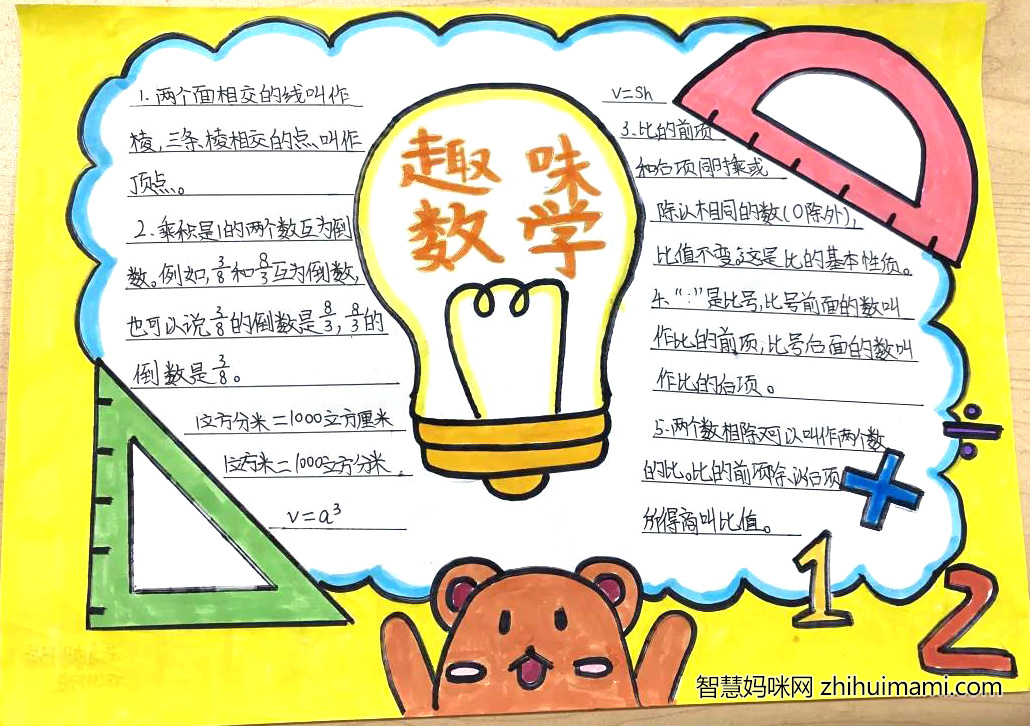 趣味
数学
1.两个面相交的线叫作
棱,三条棱相交的点叫作
顶点。
2.乘积是1的两个数互为倒
数。例如,3/8和8/3互为倒数,
也可以说3/8的倒数是8/3,8/3的
倒数是3/8。
1立方分米=1000立方厘米
1立方米=1000立方分米。
v=a³
v=sh
3.比的前项
和后项同时乘或
除以相同的数(0除外),
比值不变,这是比的基本性质。
4、":"是比号,比号前面的数叫
作比的前项,比号后面的数叫
作比的后项。
5.两个数相除,又可以叫作两个数
的比。比的前项除以后项
所得商叫比值。
÷
+
1
2
智慧妈咪网 zhihuimami.com